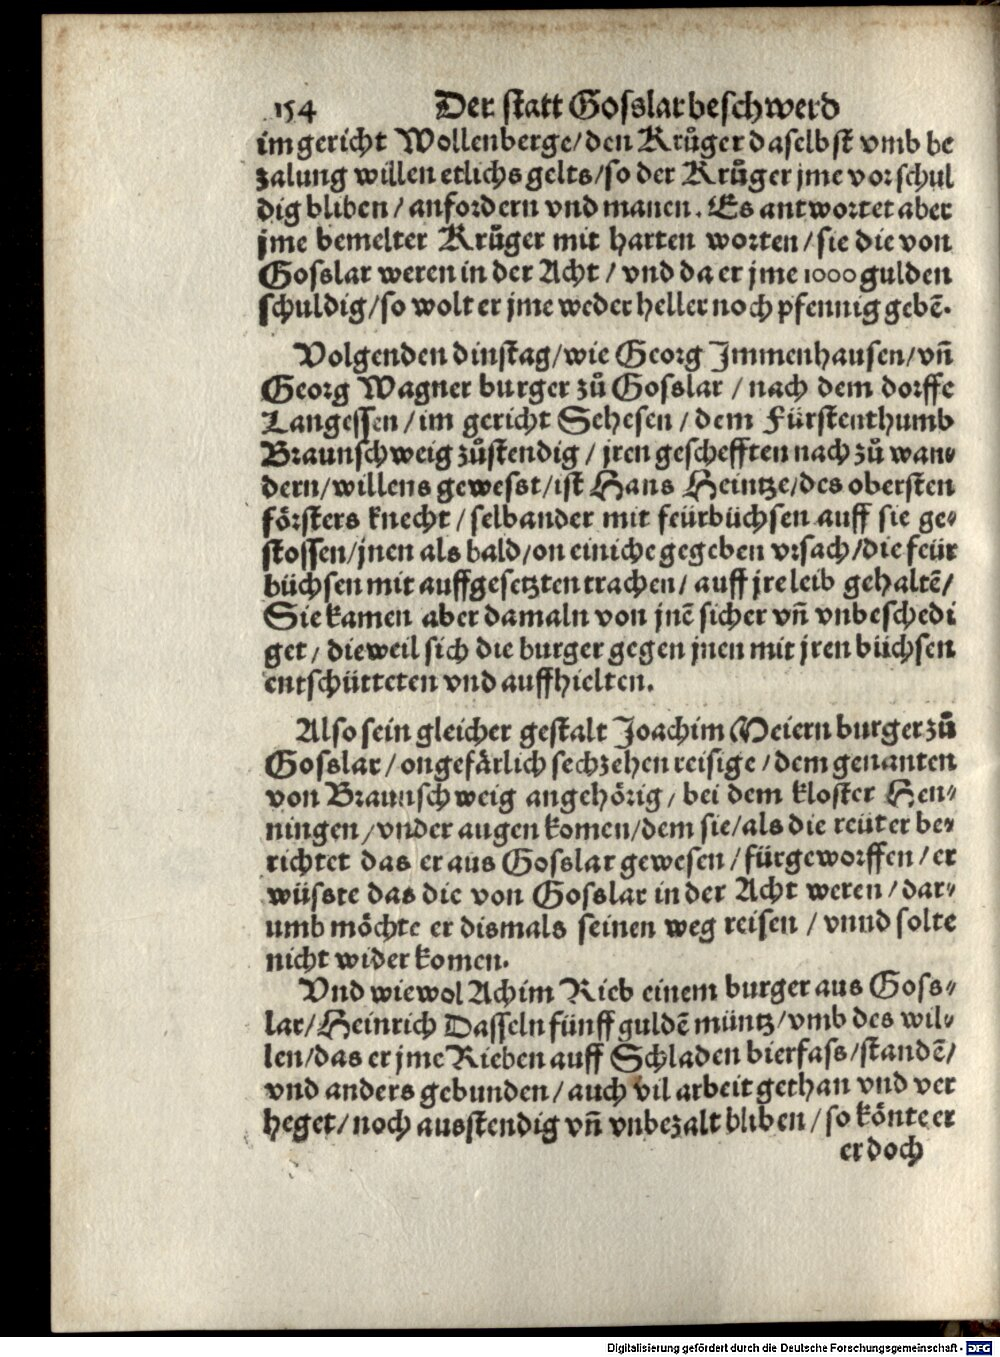 154 Der statt Gosslar beschwerd
im gericht Wollenberge/den Krůger daselbst vmb be
zalung willen etlichs gelts/so der Krůger jme vor schul
dig bliben/anfordern vnd manen. Es antwortet aber
jme bemelter Krůger mit harten worten/sie die von
Gosslar weren in der Acht/vnd da er jme 1000 gulden
schuldig/so wolt er jme weder heller noch pfennig gebē.
Volgenden dinstag/wie Georg Immenhausen/vñ
Georg Wagner burger zů Gosslar/nach dem dorffe
Langessen/im gericht Sehesen/dem Fürstenthumb
Braunschweig zůstendig/jren geschefften nach zů wan⸗
dern/willens gewesst/ist Hans Heintze/des obersten
försters knecht/selbander mit feürbüchsen auff sie ge⸗
stossen/jnen als bald/on einiche gegeben vrsach/die feür
büchsen mit auffgesetzten trachen/auff jre leib gehaltē/
Sie kamen aber damaln von jnē sicher vñ vnbeschedi
get/dieweil sich die burger gegen jnen mit jren büchsen
entschütteten vnd auffhielten.
Also sein gleicher gestalt Joachim Meiern burger zů
Gosslar/ongefärlich sechzehen reisige/dem genanten
von Braunschweig angehörig/bei dem kloster Hen⸗
ningen/vnder augen komen/dem sie/als die reüter be⸗
richtet das er aus Gosslar gewesen/fürgeworffen/er
wüsste das die von Gosslar in der Acht weren/dar⸗
umb möchte er dismals seinen weg reisen/vnnd solte
nicht wider komen.
Vnd wiewol Achim Rieb einem burger aus Goss⸗
lar/Heinrich Dasseln fünff guldē müntz/vmb des wil⸗
len/das er jme Rieben auff Schladen bierfass/standē/
vnd anders gebunden/auch vil arbeit gethan vnd ver
heget/noch ausstendig vñ vnbezalt bliben/so könte er
er doch
Digitalisierung gefördert durch die Deutsche Forschungsgemeinschaft - DFG